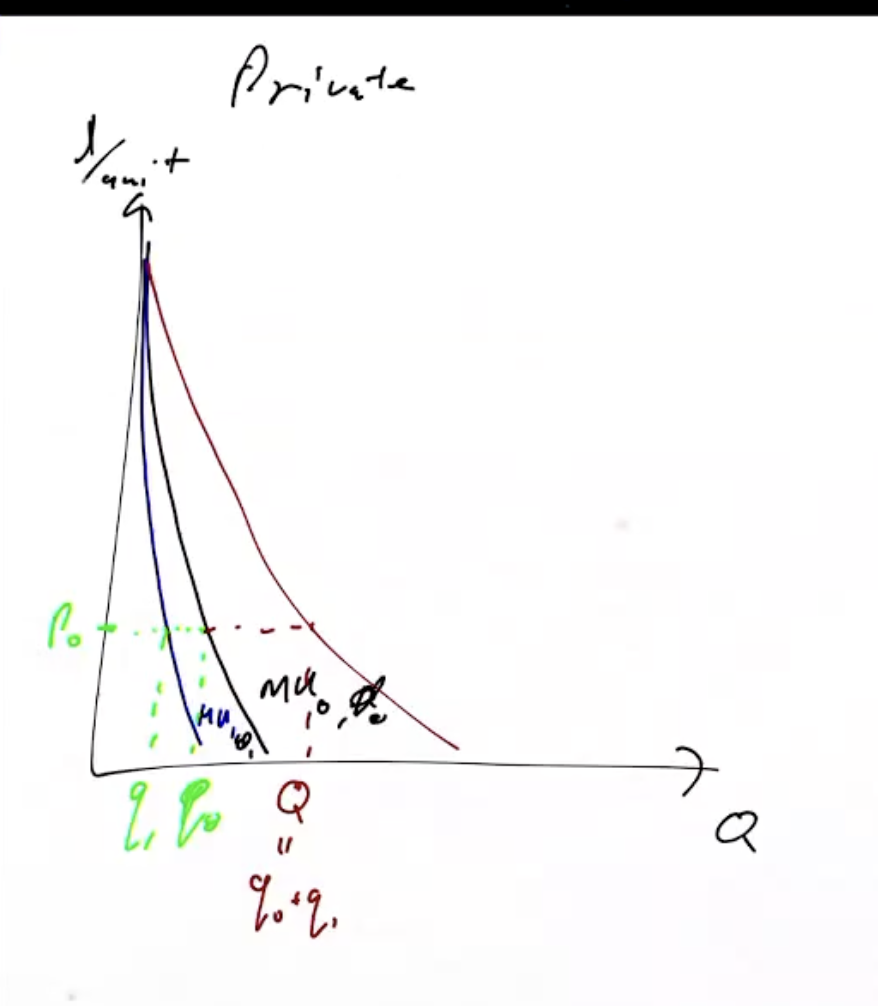 Private
$/unit
P₀
MU₀, D₀
MU₁, D₁
q₁ q₀ Q
Q
"
q₀+q₁